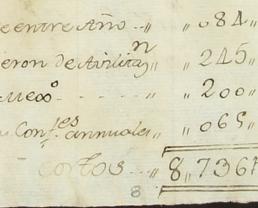 e entre Año .. „ „ 084 „
eron de Avilitaₙ „ „ 245 „
Mexº - - - - - „ „ 200 „
Conᵗ.ᵉˢ annuales „ „ 065 „
costos ... „ 8„736
8